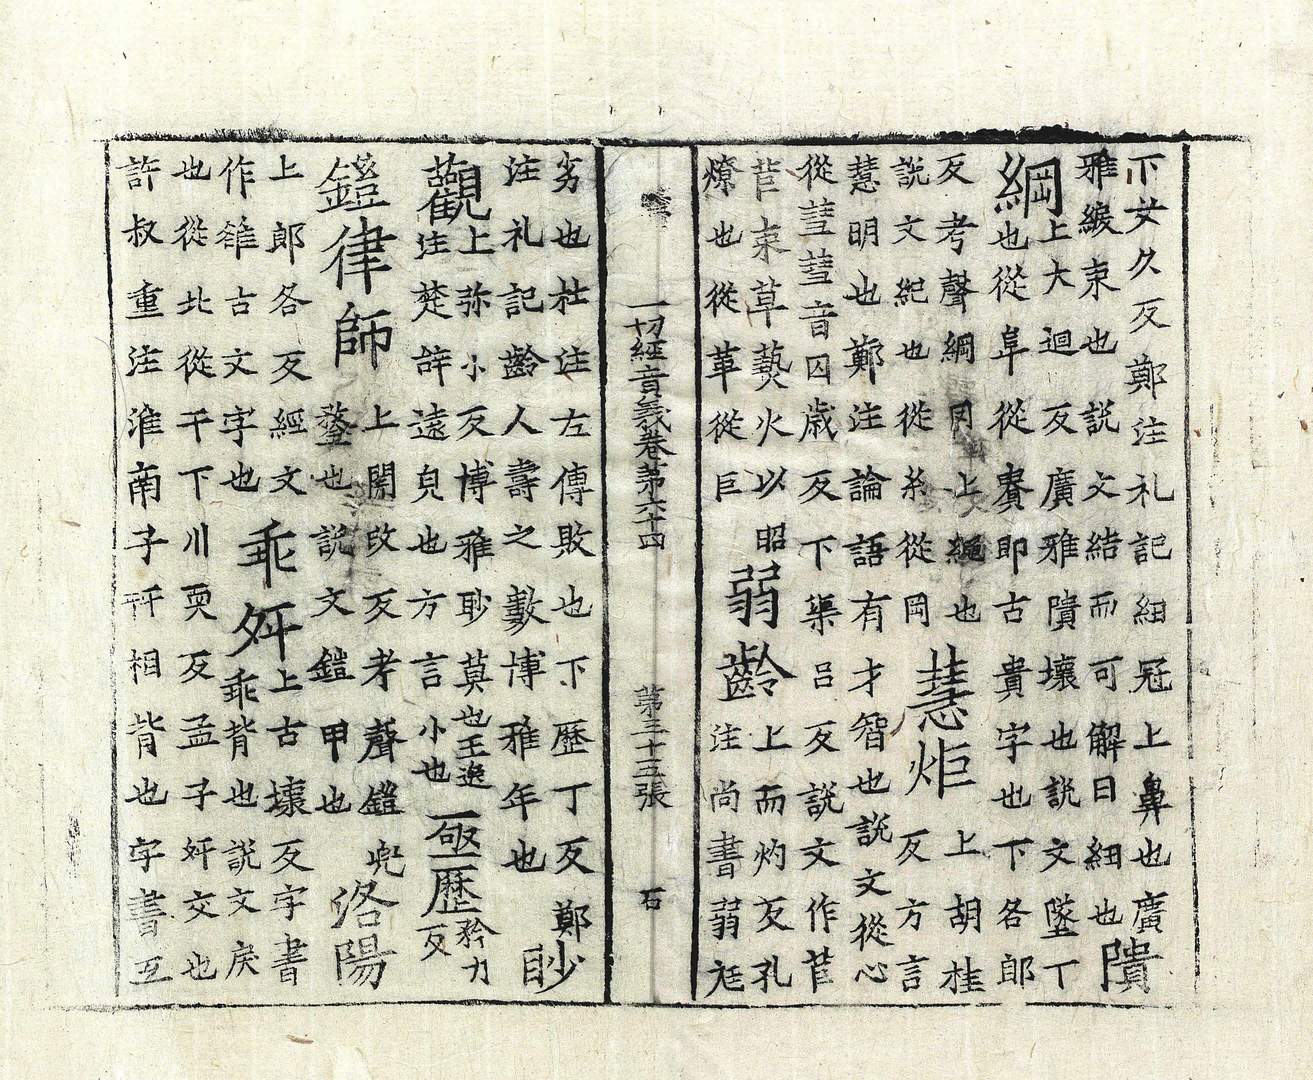 下女久反鄭注礼記紐冠上鼻也廣
雅綬束也説文結而可解曰紐也
隤
綱
上大迴反廣雅隤壞也説文墜丁
也從阜從貴即古貴字也下各郎
反考聲綱冈上繩也
説文紀也從糸從岡
慧炬
上胡桂
反方言
慧明也鄭注論語有才智也説文從心
從彗彗音囚歳反下渠呂反説文作苣
苣束草爇火以昭
燎也從革從巨
弱齡
上而灼反孔
注尚書弱尫
一切經音義卷苐六十四 苐三十五張 石
劣也杜注左傳敗也下歷丁反鄭
注礼記齡人壽之數博雅年也
眇
觀
上弥小反博雅眇莫也王逸
注楚辞遠皃也方言小也
亟歷
矜力
反
鎧律師
上開改反考聲鎧兠
鍪也説文鎧甲也
洛陽
上郎各反經文
作雒古文字也
乖舛
上古壞反字書
乖背也説文戾
也從北從干下川耎反孟子舛交也
許叔重注淮南子舛相背也字書互